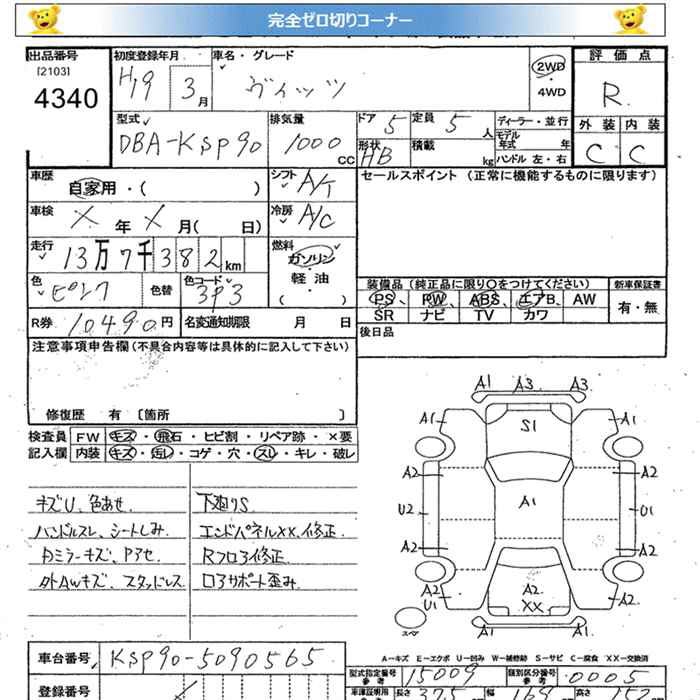 完全ゼロ切りコーナー
出品番号
[2103]
4340
初度登録年月
H19 3月
車名・グレード
ヴィッツ
2WD
4WD
評価点
R
外装 内装
C C
型式
DBA-KSP90
排気量
1000 CC
ドア 5
定員 5 人
ディーラー・並行
モデル年式 年
形状 HB
積載 kg
ハンドル 左・右
車歴
自家用・( )
シフト A/T
セールスポイント (正常に機能するものに限ります)
車検
X 年 X 月( 日)
冷房 A/C
走行
13万7千382km
燃料
ガソリン
軽油
( )
色
ピンク
色替
色コード
3P3
装備品 (純正品に限り○をつけてください)
新車保証書
PS、PW、ABS、エアB、AW
有・無
SR ナビ TV カワ
R券 10490円
名変通知期限 月 日
後日品
注意事項申告欄 (不具合内容等は具体的に記入して下さい)
修復歴 有 〔箇所 〕
検査員
記入欄
FW キズ・飛石・ヒビ割・リペア跡・×要
内装 キズ・汚レ・コゲ・穴・スレ・キレ・破レ
キズU、色あせ
ハンドルスレ、シートしみ、
外AWキズ、スタッドレス
下廻りS
エンドパネルXX、修正
A1 A3 A3
A1 S1 A1
A2 A2
U2 A1 U1
A2 A2
A2 A2 A2
U1 XX
A1 A1
スペア
A-キズ E-エクボ U-凹み W-補修跡 S-サビ C-腐食 XX-交換済
車台番号 KSP90-5090565
型式指定番号 参考 15009
類別区分番号 参考 0005
登録番号
車庫証明用 長さ 375 幅 169 高さ 152